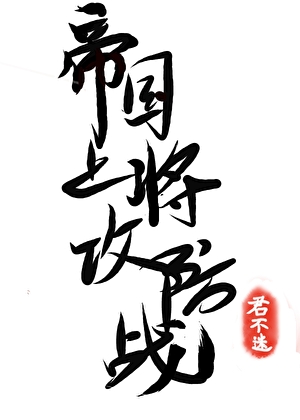 帝国
上将
攻防
战
君不迷